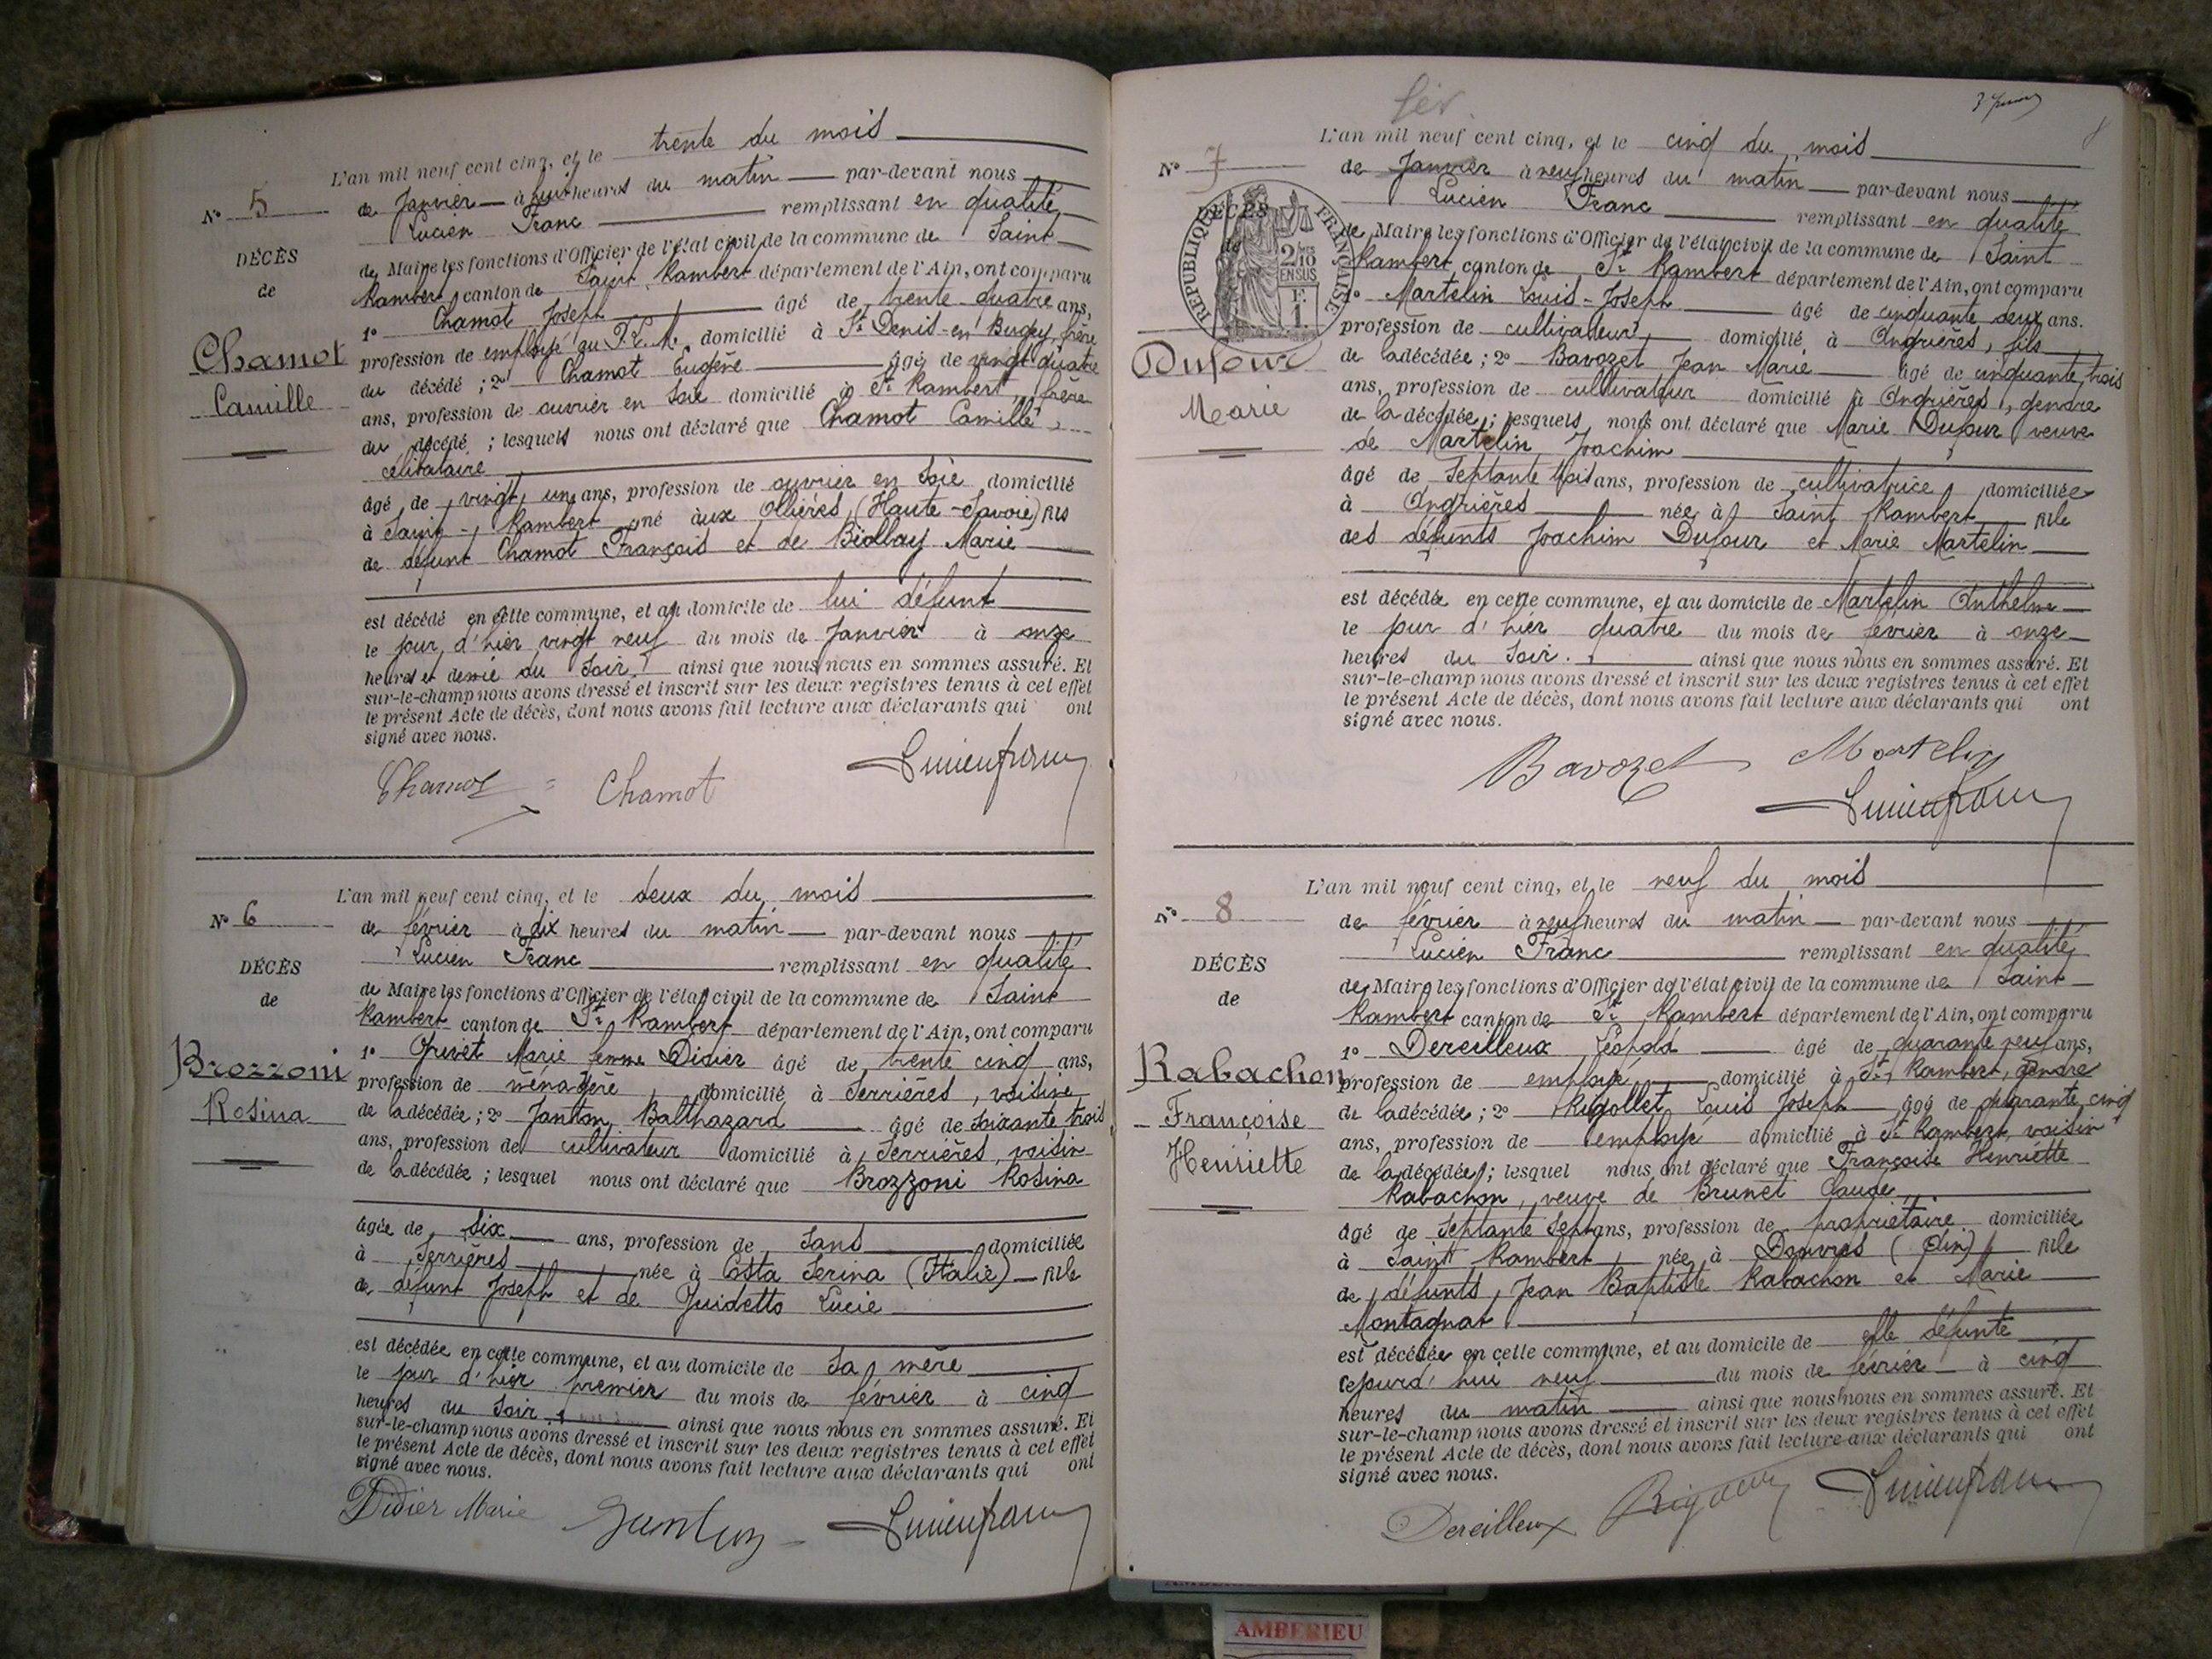 L'an mil neuf cent cinq, et le trente du mois
Nº 5
de Janvier à huit heures du matin par-devant nous
Lucien Franc remplissant en qualité
DÉCÈS
de Maire les fonctions d'Officier de l'état civil de la commune de Saint
de
Rambert canton de Saint Rambert département de l'Ain, ont comparu
1º Chamot Joseph âgé de trente quatre ans,
Chamot
profession de employé au P.L.M. domicilié à St Denis-en Bugey, frère
du décédé ; 2º Chamot Eugène âgé de vingt quatre
Camille
ans, profession de ouvrier en soie domicilié à St Rambert, frère
du décédé ; lesquels nous ont déclaré que Chamot Camille,
célibataire
âgé de vingt un ans, profession de ouvrier en soie domicilié
à Saint-Rambert né aux Ollières (Haute-Savoie) fils
de défunt Chamot François et de Biollay Marie
est décédé en cette commune, et au domicile de lui défunt
le jour d'hier vingt neuf du mois de Janvier à onze
heures et demie du soir. ainsi que nous nous en sommes assuré. Et
sur-le-champ nous avons dressé et inscrit sur les deux registres tenus à cet effet
le présent Acte de décès, dont nous avons fait lecture aux déclarants qui ont
signé avec nous.
Chamot Chamot Lucien Franc
L'an mil neuf cent cinq, et le deux du mois
Nº 6
de février à dix heures du matin par-devant nous
Lucien Franc remplissant en qualité
DÉCÈS
de Maire les fonctions d'Officier de l'état civil de la commune de Saint
de
Rambert canton de St Rambert département de l'Ain, ont comparu
1º Grevet Marie femme Didier âgé de trente cinq ans,
Brozzoni
profession de ménagère domicilié à Serrières, voisine
Rosina
de la décédée ; 2º Janton Balthazard âgé de soixante trois
ans, profession de cultivateur domicilié à Serrières, voisin
de la décédée ; lesquel nous ont déclaré que Brozzoni Rosina
âgée de six ans, profession de sans domiciliée
à Serrières née à Costa Serina (Italie) fille
de défunt Joseph et de Guidetto Lucie
est décédée en cette commune, et au domicile de sa mère
le jour d'hier premier du mois de février à cinq
heures du soir. ainsi que nous nous en sommes assuré. Et
sur-le-champ nous avons dressé et inscrit sur les deux registres tenus à cet effet
le présent Acte de décès, dont nous avons fait lecture aux déclarants qui ont
signé avec nous.
Didier Marie Janton Lucien Franc
fév
8
L'an mil neuf cent cinq, et le cinq du mois
Nº 7
de Janvier à neuf heures du matin par-devant nous
Lucien Franc remplissant en qualité
DÉCÈS
de
RÉPUBLIQUE FRANÇAISE
2/10 EN SUS
F. 1.
de Maire les fonctions d'Officier de l'état civil de la commune de Saint
Rambert canton de St Rambert département de l'Ain, ont comparu
1º Martelin Louis-Joseph âgé de cinquante deux ans.
profession de cultivateur domicilié à Angrières, fils
Dufour
de la décédée ; 2º Bavozet Jean Marie âgé de cinquante trois
ans, profession de cultivateur domicilié à Angrières, gendre
Marie
de la décédée ; lesquels nous ont déclaré que Marie Dufour veuve
de Martelin Joachim
âgé de septante trois ans, profession de cultivatrice domiciliée
à Angrières née à Saint Rambert fille
des défunts Joachim Dufour et Marie Martelin
est décédée en cette commune, et au domicile de Martelin Anthelme
le jour d'hier quatre du mois de février à onze
heures du soir. ainsi que nous nous en sommes assuré. Et
sur-le-champ nous avons dressé et inscrit sur les deux registres tenus à cet effet
le présent Acte de décès, dont nous avons fait lecture aux déclarants qui ont
signé avec nous.
Bavozet Martelin
Lucien Franc
L'an mil neuf cent cinq, et le neuf du mois
Nº 8
de février à neuf heures du matin par-devant nous
Lucien Franc remplissant en qualité
DÉCÈS
de Maire les fonctions d'Officier de l'état civil de la commune de Saint
de
Rambert canton de St Rambert département de l'Ain, ont comparu
1º Dereilleux Léopold âgé de quarante neuf ans,
Rabachon
profession de employé domicilié à St Rambert, gendre
de la décédée ; 2º Rigollet Louis Joseph âgé de quarante cinq
Françoise
ans, profession de employé domicilié à St Rambert, voisin
Henriette
de la décédée ; lesquel nous ont déclaré que Françoise Henriette
Rabachon, veuve de Brunet Claude,
âgé de septante sept ans, profession de propriétaire domiciliée
à Saint Rambert née à Douvres (Ain) fille
de défunts Jean Baptiste Rabachon et Marie
Montagnat
est décédée en cette commune, et au domicile de elle défunte
cejourd'hui neuf du mois de février à cinq
heures du matin ainsi que nous nous en sommes assuré. Et
sur-le-champ nous avons dressé et inscrit sur les deux registres tenus à cet effet
le présent Acte de décès, dont nous avons fait lecture aux déclarants qui ont
signé avec nous.
Dereilleux Lucien Franc
AMBERIEU